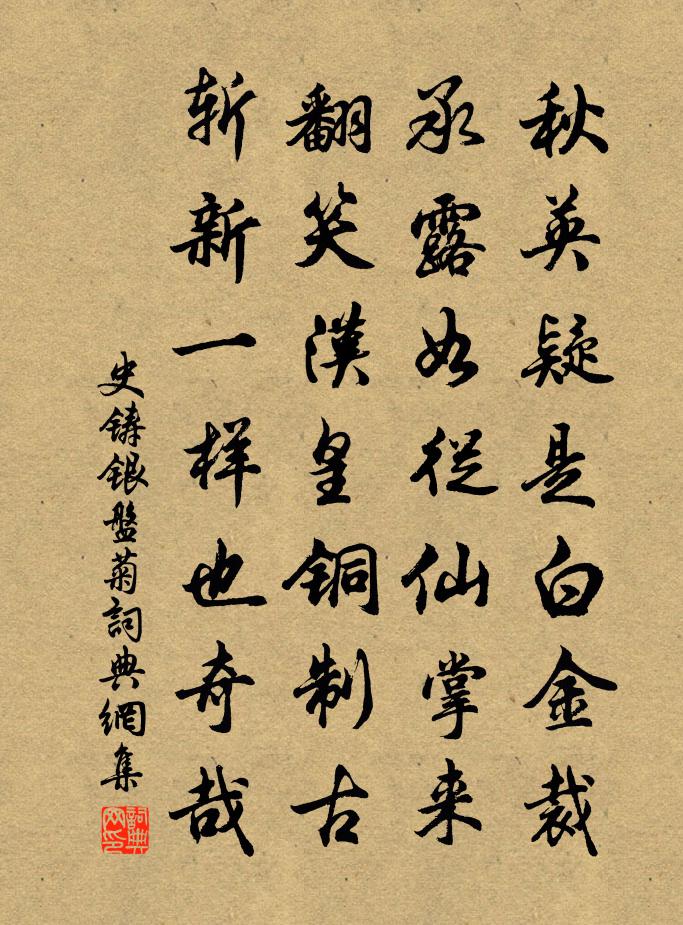 秋英疑是白金裁
承露如從仙掌来
翻笑漢皇銅制古
斬新一样也奇哉
史鑄銀盤菊詞典網集
詞典网印